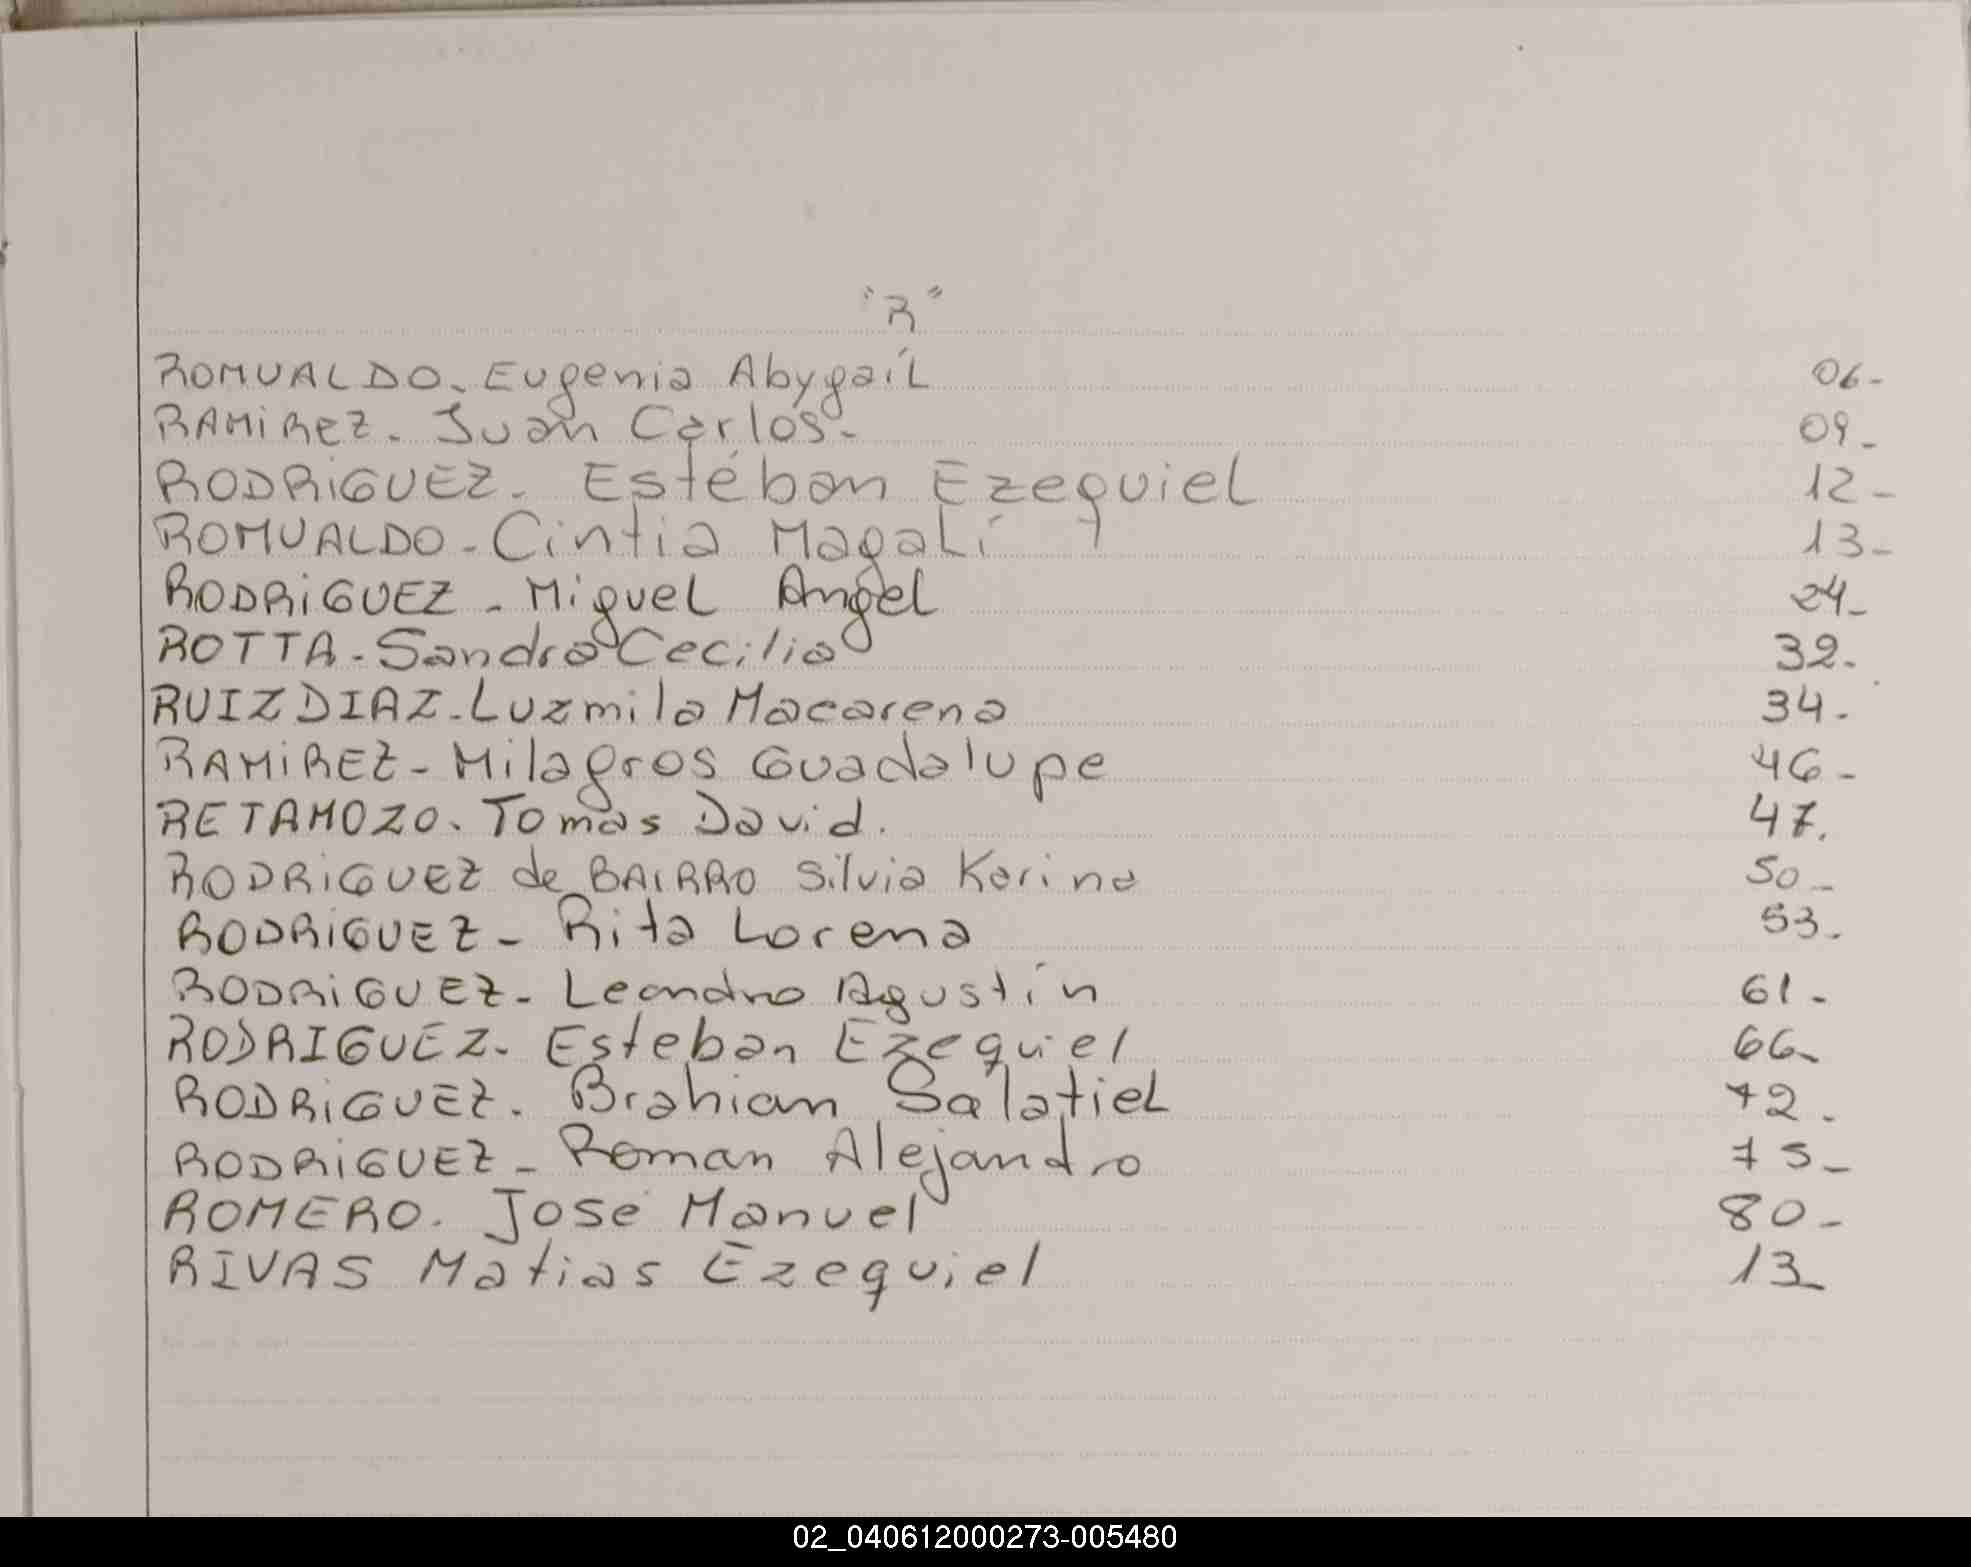 "R"
ROMUALDO. Eugenia Abygaíl 06-
RAMiReZ. Juan Carlos- 09-
RODRiGUEZ. Estéban Ezequiel 12-
ROMUALDO- Cintia Magalí 13-
RODRiGUEZ - Miguel Angel 24-
ROTTA- Sandra Cecilia 32.
RUIZ DIAZ- Luzmila Macarena 34.
RAMiREZ- Milagros Guadalupe 46-
RETAMOZO. Tomas David. 47.
RODRiGUEZ de BAIRRO Silvia Karina 50-
RODRiGUEZ- Rita Lorena 53.
RODRiGUEZ- Leandro Agustín 61-
RODRIGUEZ- Esteban Ezequiel 66-
RODRiGUEZ. Brahian Salatiel 72.
RODRiGUEZ- Roman Alejandro 75-
ROMERO. José Manuel 80-
RIVAS Matias Ezequiel 13-
02_040612000273-005480